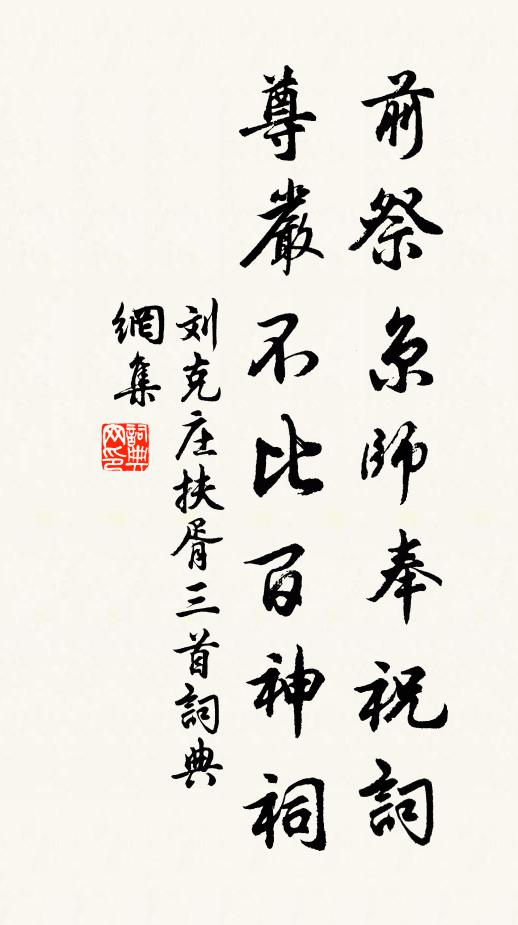 前祭京師奉祝詞
尊嚴不比百神祠
刘克庄扶胥三首詞典
網集
詞典
网印